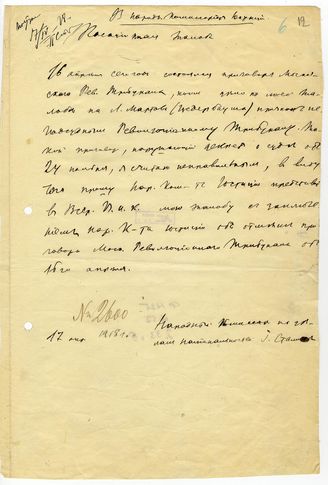 В Народн. Комиссариат Юстиции
6
12
Кассационная жалоба
16 апреля сего года состоялся приговор Москов-
ского Рев. Трибунала, коим дело по моей жа-
лобе на Л. Мартова (Цедербаума) признано не
подсудным Революционному Трибуналу. Та-
кой приговор, нарушающий декрет о суде от
24 ноября, я считаю неправильным, в виду
чего прошу Нар. Ком-т Юстиции представить
в Всер. Ц.И.К. мою жалобу с заключе-
нием Нар. К-та Юстиции об отмене при-
говора Моск. Революционного Трибунала от
16го апреля.
№ 2600
17 1918 г.
Народный Комиссар по де-
лам национальностей И. Сталин